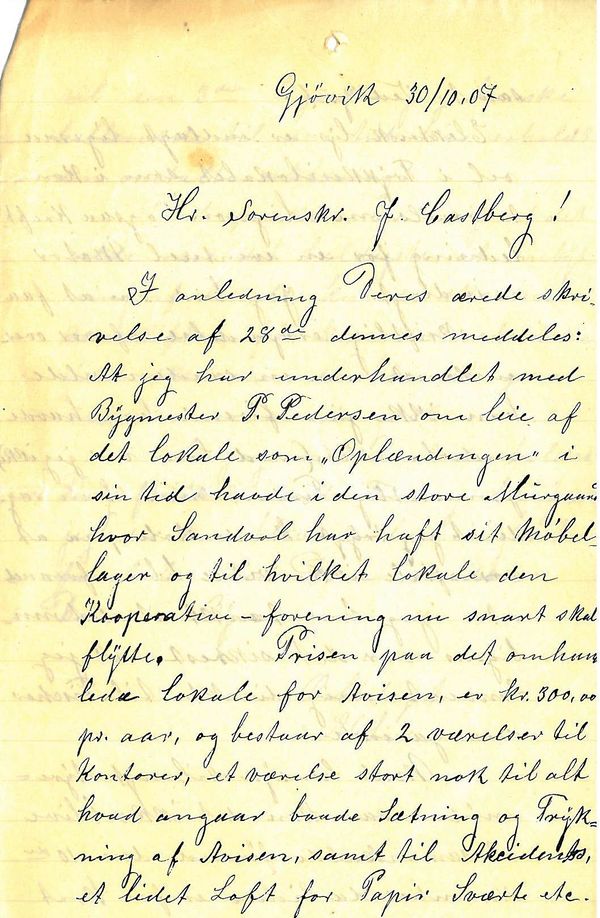 Gjövik 30/10.07
Hr. Sorenskr. J. Castberg!
I anledning Deres ærede skri-
velse af 28de dennes meddeles:
At jeg har underhandlet med
Bÿgmester P. Pedersen om leie af
det lokale som „Oplændingen" i
sin tid havde i den store Murgaard
hvor Sandvol har haft sit Møbel-
lager og til hvilket lokale den
Kooperative-forening nu snart skal
flÿtte. Prisen paa det omhan
lede lokale for Avisen, er kr. 300,00
pr. aar, og bestaar af 2 værelser til
Kontorer, et værelse stort nok til alt
hvad angaar baade Sætning og Trÿk-
ning af Avisen, samt til Akcidents,
et lidet Loft for Papir Sværte etc.